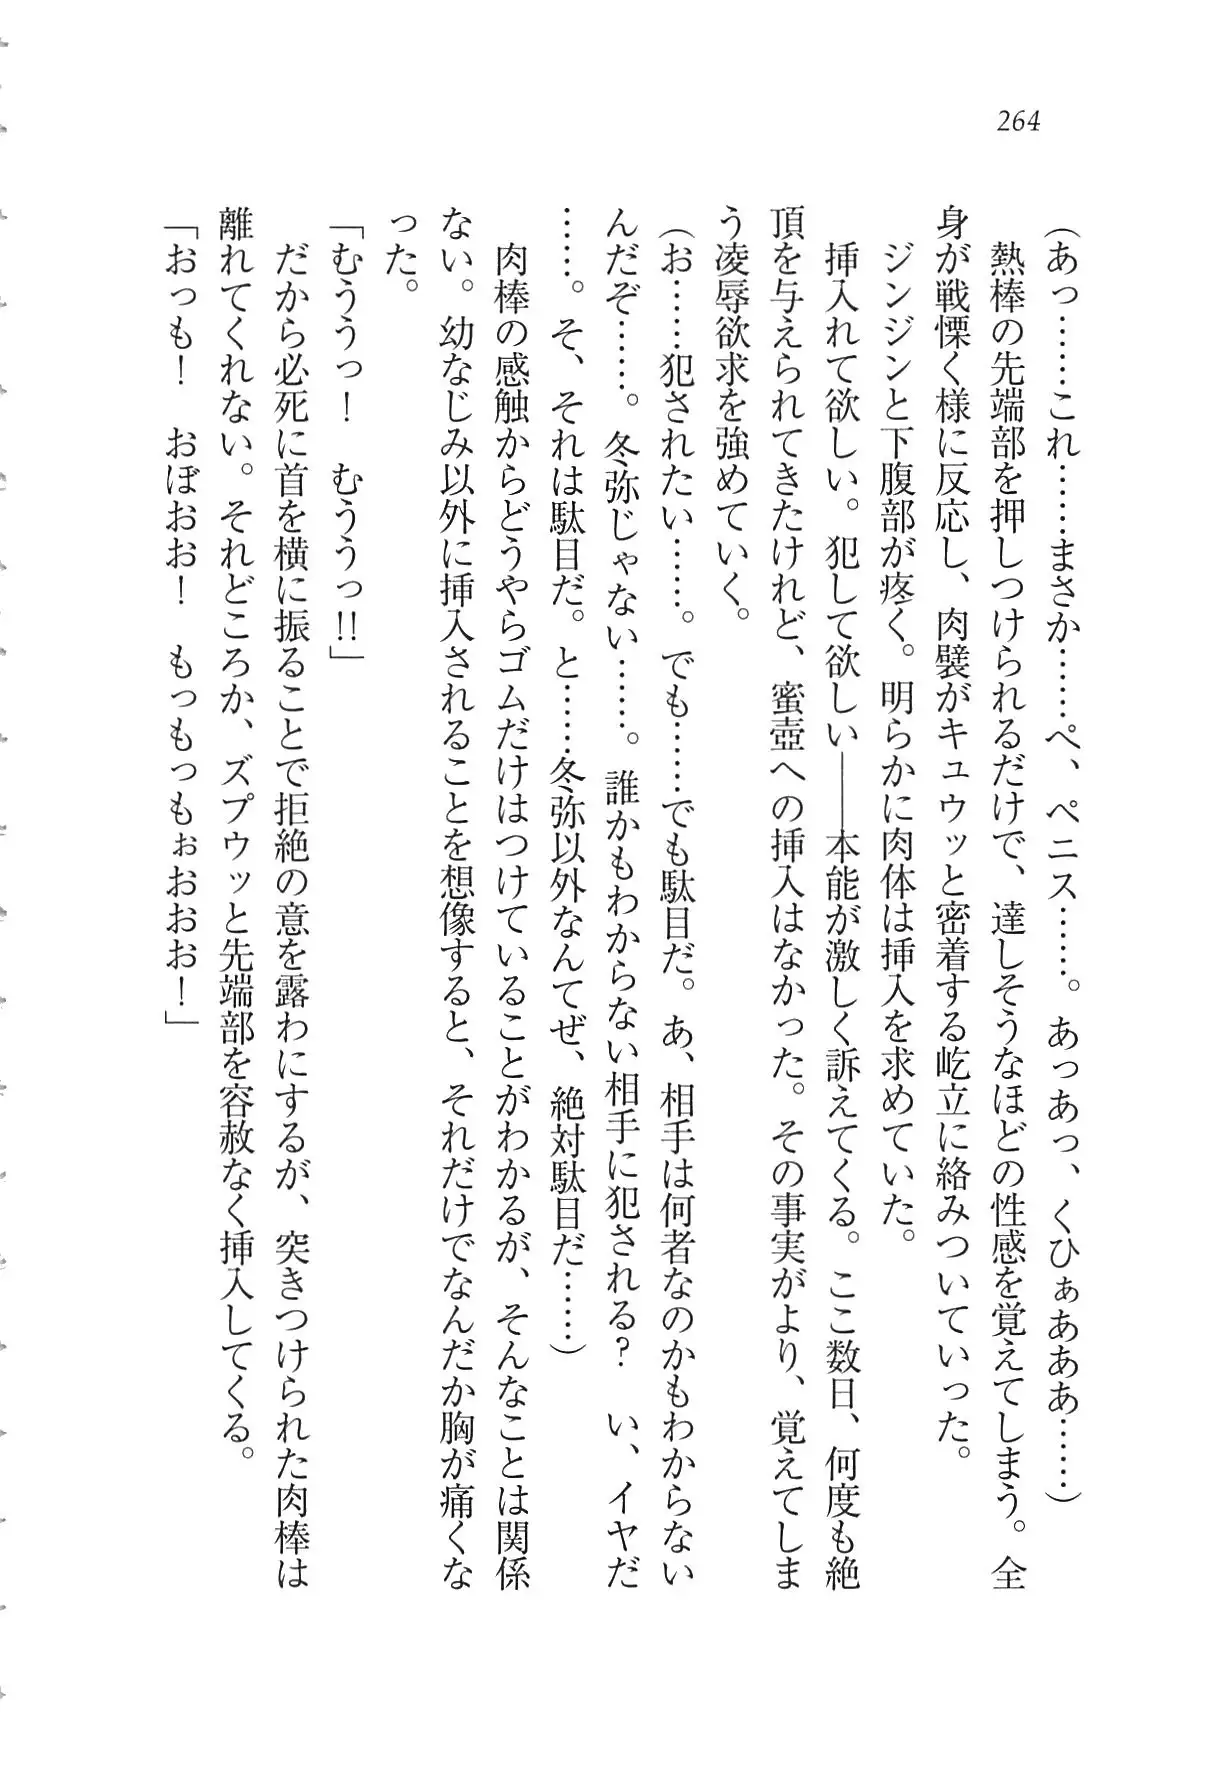 264
(あっ……これ……まさか……ペ、ペニス……。あっあっ、くひぁあああ……)
　熱棒の先端部を押しつけられるだけで、達しそうなほどの性感を覚えてしまう。全
身が戦慄く様に反応し、肉襞がキュウッと密着する屹立に絡みついていった。
　ジンジンと下腹部が疼く。明らかに肉体は挿入を求めていた。
　挿入れて欲しい。犯して欲しい――本能が激しく訴えてくる。ここ数日、何度も絶
頂を与えられてきたけれど、蜜壺への挿入はなかった。その事実がより、覚えてしま
う凌辱欲求を強めていく。
(お……犯されたい……。でも……でも駄目だ。あ、相手は何者なのかもわからない
んだぞ……。冬弥じゃない……。誰かもわからない相手に犯される?　い、イヤだ
……。そ、それは駄目だ。と……冬弥以外なんてぜ、絶対駄目だ……)
　肉棒の感触からどうやらゴムだけはつけていることがわかるが、そんなことは関係
ない。幼なじみ以外に挿入されることを想像すると、それだけでなんだか胸が痛くな
った。
「むううっ!　むううっ!!」
　だから必死に首を横に振ることで拒絶の意を露わにするが、突きつけられた肉棒は
離れてくれない。それどころか、ズプウッと先端部を容赦なく挿入してくる。
「おっも!　おぼおお!　もっもっもぉおおお!」